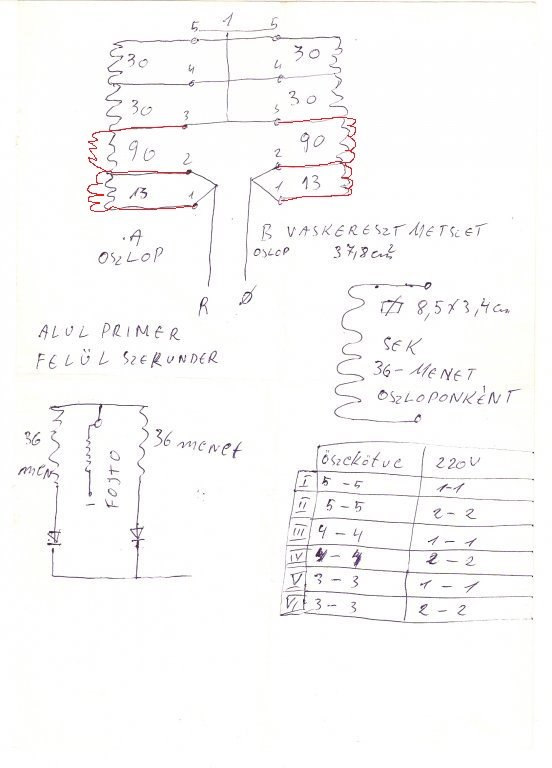 5 1 5
30 30
4 4
30 30
3 3
90 90
2 2
13 13
1 1
A
OSZLOP
B VASKERESZTMETSZET
OSLOP 37,8 cm²
R Ø
ALUL PRIMER
FELÜL SZEKUNDER
8,5 x 3,4 cm
SEK
36-MENET
OSZLOPONKÉNT
36
men
FOJTÓ
36 menet
öszekötve 220V
I 5-5 1-1
II 5-5 2-2
III 4-4 1-1
IV 4-4 2-2
V 3-3 1-1
VI 3-3 2-2